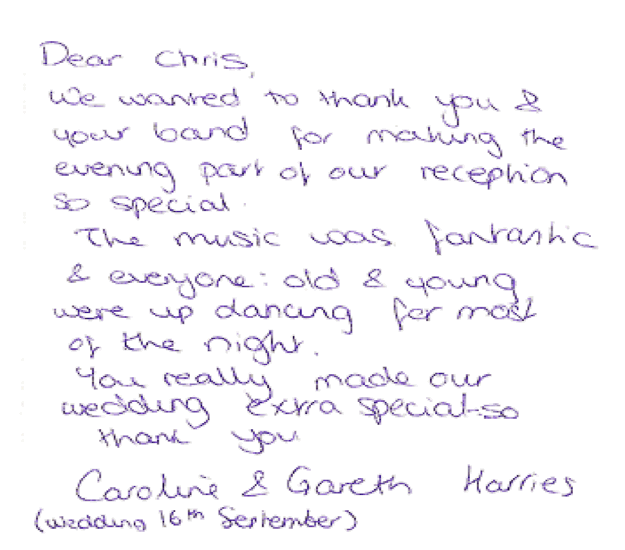 Dear Chris,
We wanted to thank you &
your band for making the
evening part of our reception
so special.
The music was fantastic
& everyone: old & young
were up dancing for most
of the night.
You really made our
wedding extra special - so
thank you
Caroline & Gareth Harries
(wedding 16th September)